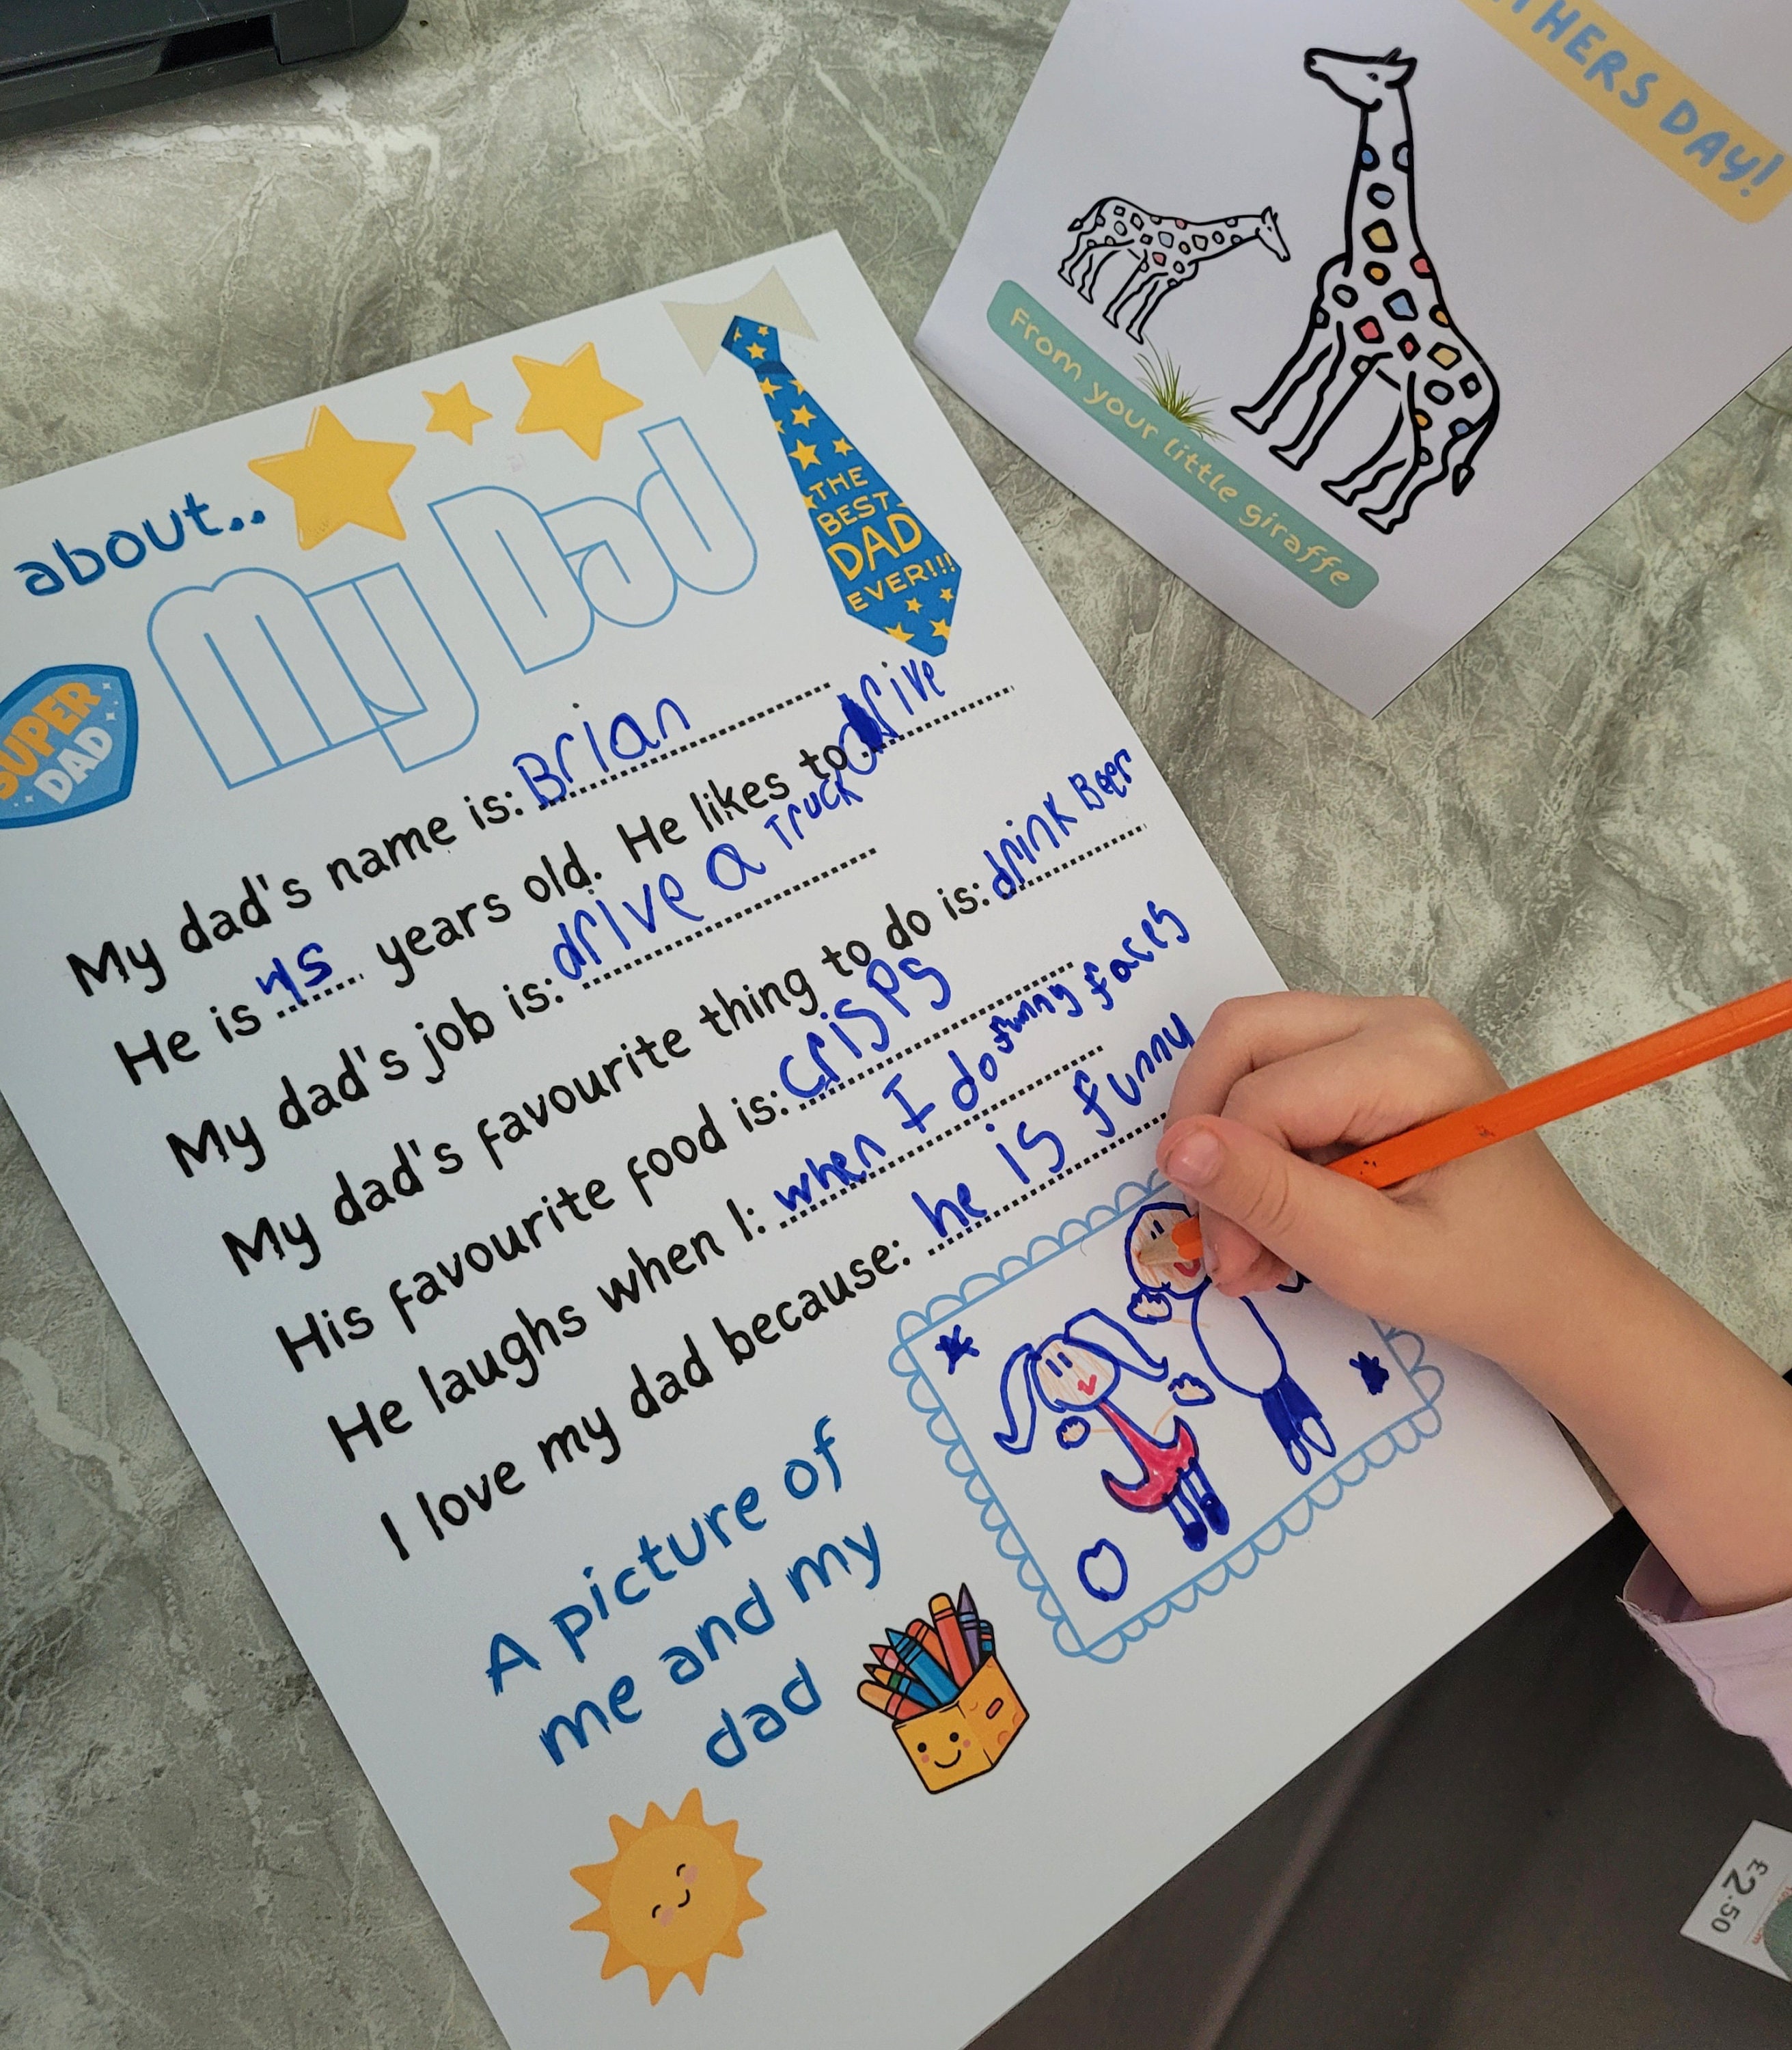 THERS DAY!
From your little giraffe
about..
My Dad
THE
BEST
DAD
EVER!!!
SUPER
DAD
My dad's name is: Brian
He is 45 years old. He likes to drive
My dad's job is: drive a Truck
My dad's favourite thing to do is: drink Beer
His favourite food is: crisps
He laughs when I: when I do funny faces
I love my dad because: he is funny
A picture of
me and my
dad
£2.50